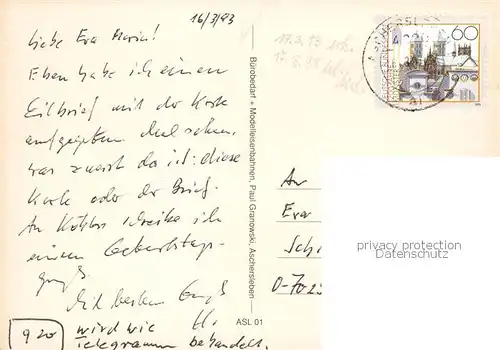 16/3/93
Liebe Eva Maria!
Eben habe ich einen
Eilbrief mit der Karte
aufgegeben. Mal sehen,
was zuerst da ist: diese
Karte oder der Brief.
An Köhlers schreibe ich
einen Geburtstags-
gruß.
Mit besten Gruß
H.
920 wird wie
Telegramm behandelt.
Bürobedarf + Modelleisenbahnen, Paul Granowski, Aschersleben
ASL 01
60
17.3.93
An
Eva
Sch
O-702
privacy protection
Datenschutz